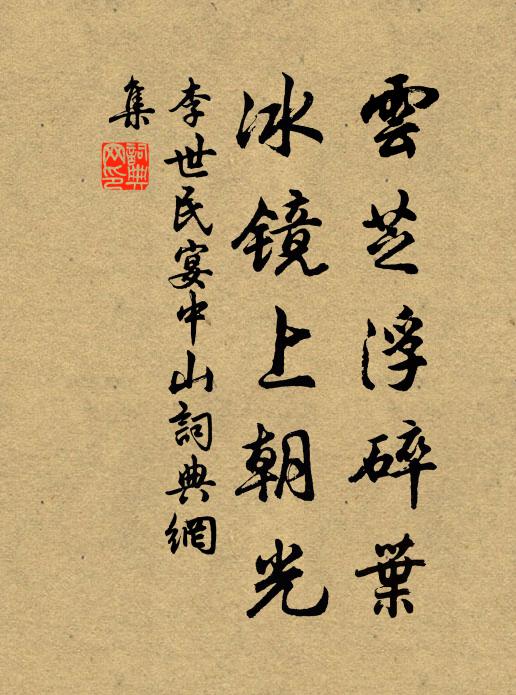 雲芝浮碎葉
冰镜上朝光
李世民宴中山詞典網
集
詞典網印